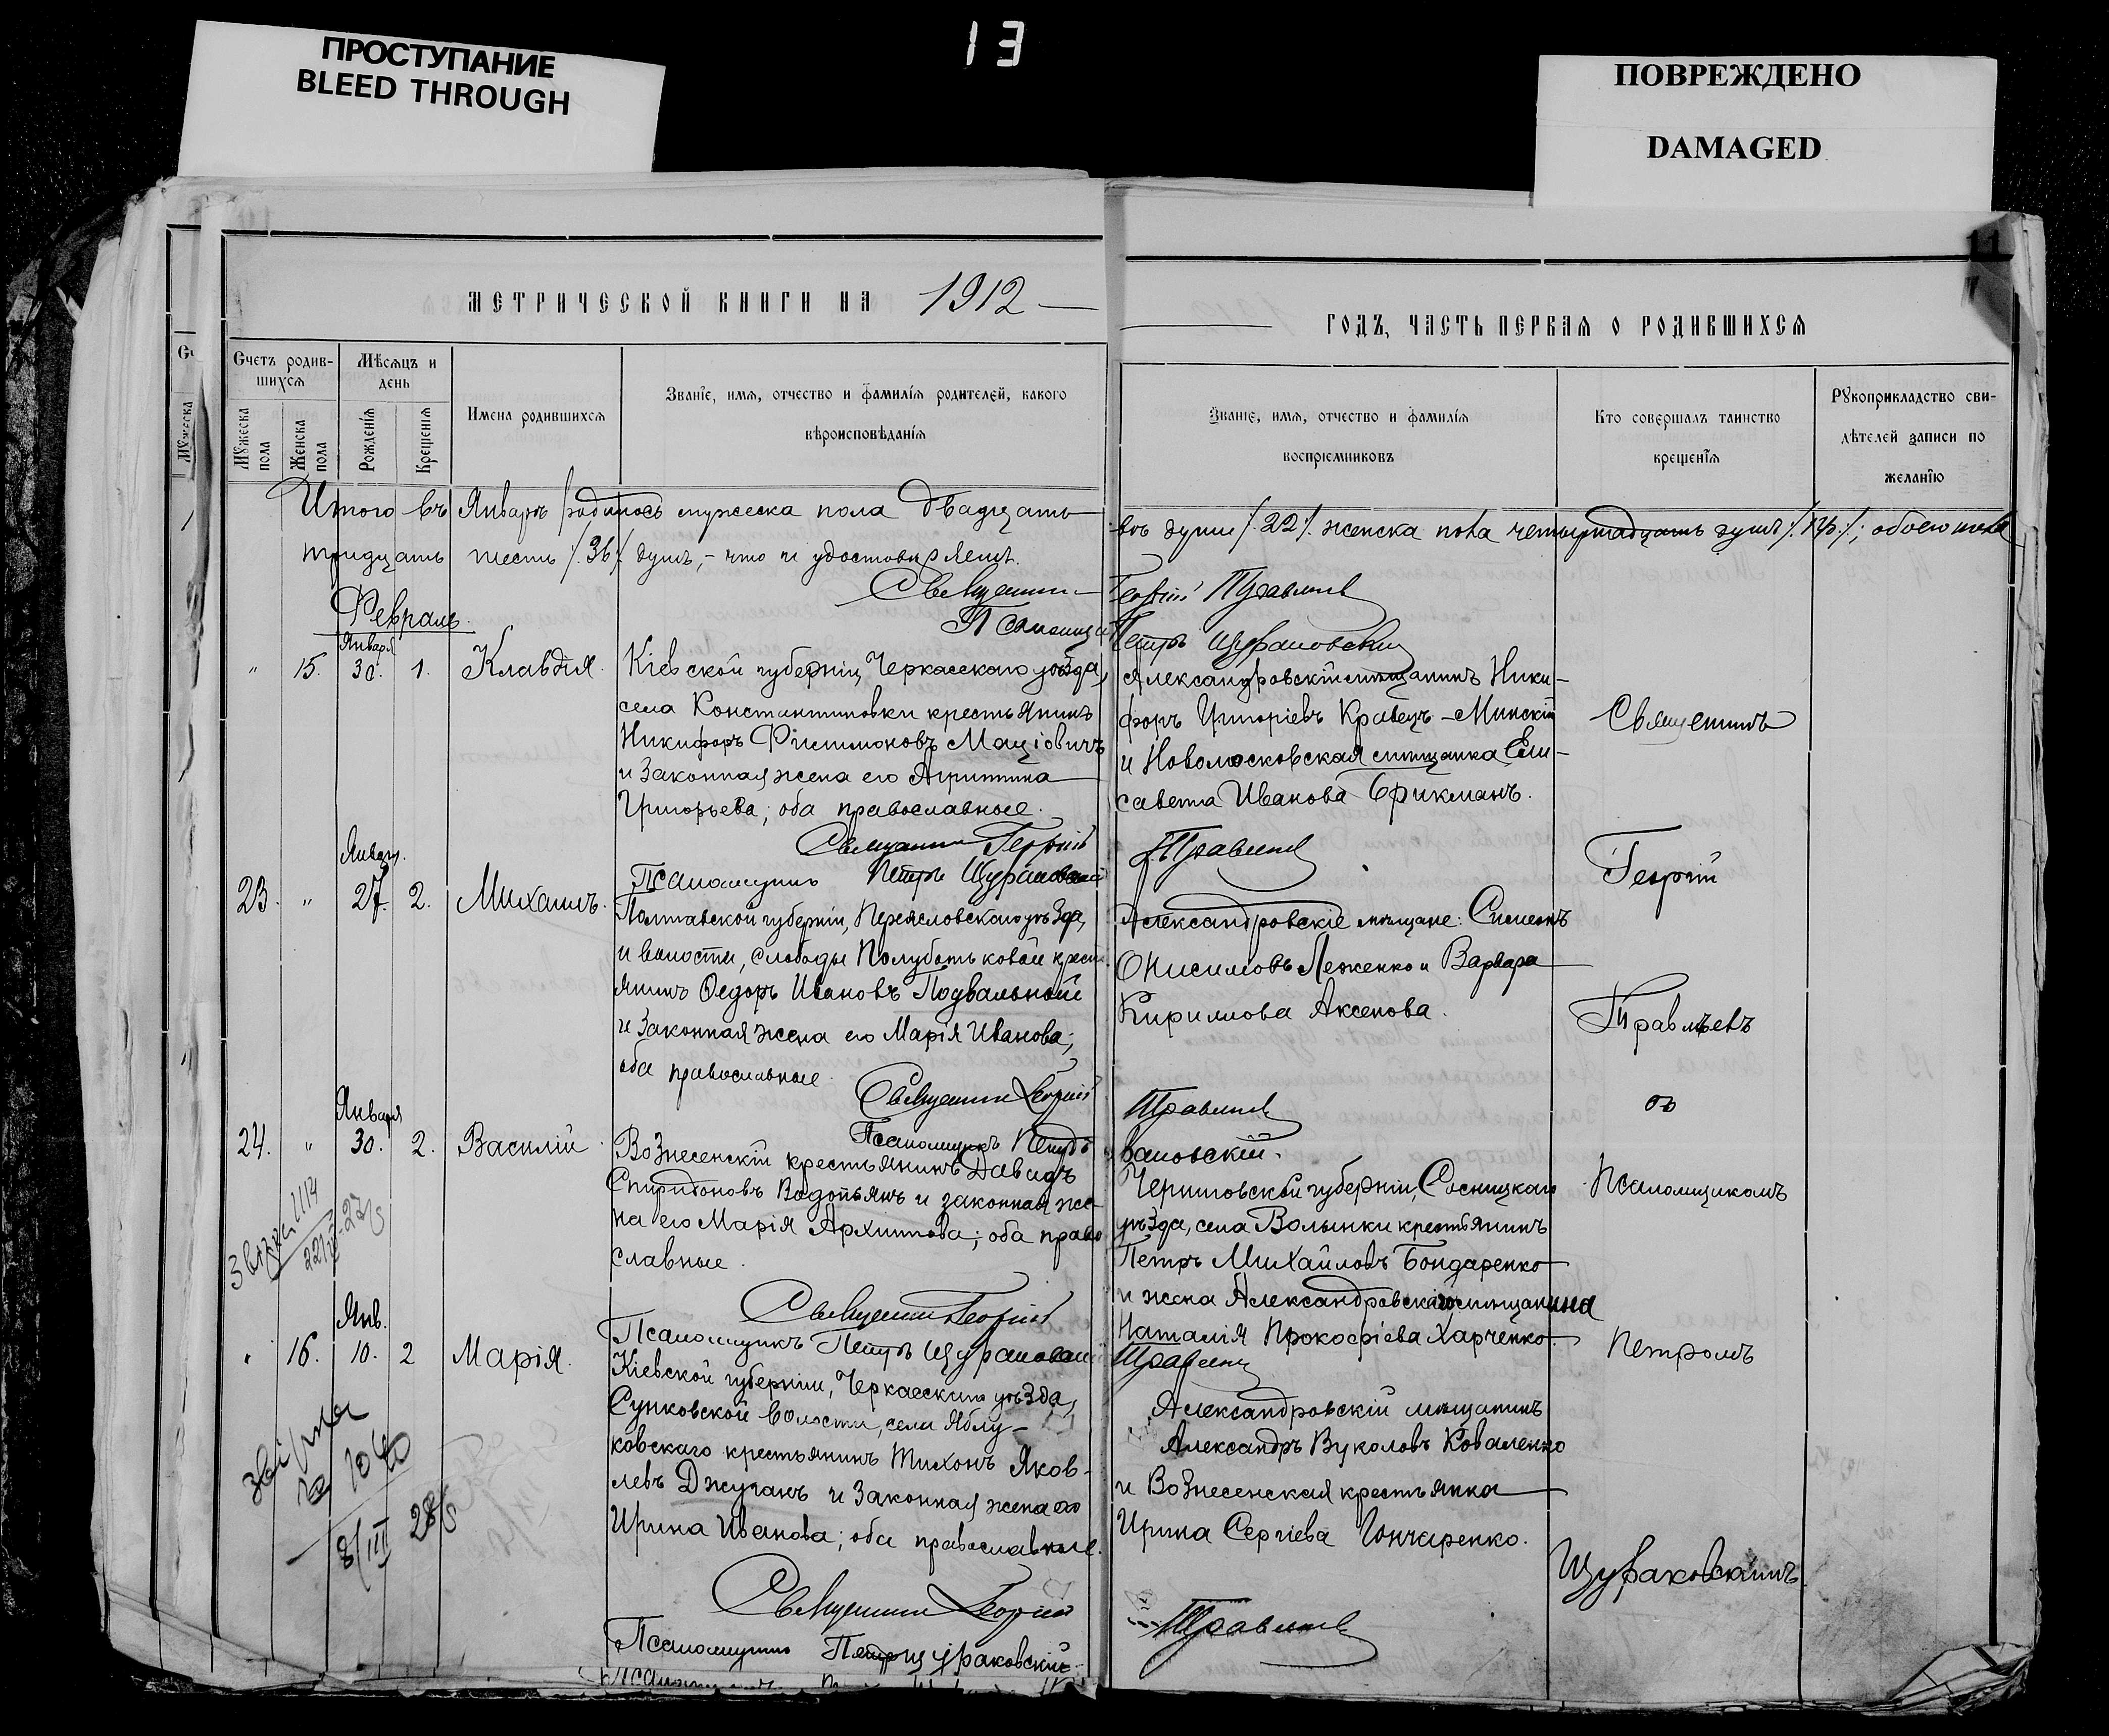 13
ПРОСТУПАНИЕ
BLEED THROUGH
ПОВРЕЖДЕНО
DAMAGED
11
МЕТРИЧЕСКОЙ КНИГИ НА 1912
ГОДЪ, ЧАСТЬ ПЕРВАЯ О РОДИВШИХСЯ
Счетъ родив-
шихся
Мужеска пола
Женска пола
Мѣсяцъ и
день
Рожденія
Крещенія
Имена родившихся
Званіе, имя, отчество и фамилія родителей, какого
вѣроисповѣданія
Званіе, имя, отчество и фамилія
воспріемниковъ
Кто совершалъ таинство
крещенія
Рукоприкладство сви-
дѣтелей записи по
желанію
Итого въ Январѣ родилось мужеска пола двадцать
двѣ души /22/. женска пола четырнадцать душъ /14/; обоего пола
тридцать шесть /36/ душъ, - что и удостовѣряемъ.
Священникъ Георгій Травлѣевъ
Псаломщикъ Петръ Щураковскій
Февраль.
Января
" 15. 30. 1. Клавдія.
Кіевской губерніи, Черкасскаго уѣзда,
села Константиновки крестьянинъ
Никифоръ Филимоновъ Маціовичъ
и законная жена его Агриппина
Григорьева; оба православные.
Александровскій мѣщанинъ Ники-
форъ Григоріевъ Кравецъ-Минскій
и Новомосковская мѣщанка Ели-
савета Иванова Брикманъ.
Священникъ Георгій Травлѣевъ
Псаломщикъ Петръ Щураковскій
Январ.
23. " 27. 2. Михаилъ.
Полтавской губерніи, Переясловскаго уѣзда,
и волости, слободы Полуботьковой крест-
янинъ Ѳедоръ Ивановъ Подвальный
и законная жена его Марія Иванова;
оба православные.
Александровскіе мѣщане: Симеонъ
Онисимовъ Леженко и Варвара
Кирилова Аксенова.
Священникъ Георгій Травлѣевъ
Псаломщикъ Петръ
Января
24. " 30. 2. Василій
Вознесенскій крестьянинъ Давидъ
Спиридоновъ Водопьянъ и законная же-
на его Марія Архипова; оба право
славные.
Черниговской губерніи, Сосницкаго
уѣзда, села Волынки крестьянинъ
Петръ Михайловъ Бондаренко
и жена Александровскаго мѣщанина
Наталія Прокофіева Харченко.
Священникъ Георгій Травлѣевъ
Псаломщикъ Петръ Щураковскій
Янв.
" 16. 10. 2 Марія.
Кіевской губерніи, Черкасскаго уѣзда,
Сунковской волости, села Яблу-
ковскаго крестьянинъ Тихонъ Яков-
левъ Джуганъ и законная жена его
Ирина Иванова; оба православные.
Александровскій мѣщанинъ
Александръ Вуколовъ Коваленко
и Вознесенская крестьянка
Ирина Сергіева Гончаренко.
8/III 28
Священникъ Георгій Травлѣевъ
Псаломщикъ Петръ Щураковскій.
Священникъ
Георгій
Травлѣевъ
съ
Псаломщикомъ
Петромъ
Щураковскимъ